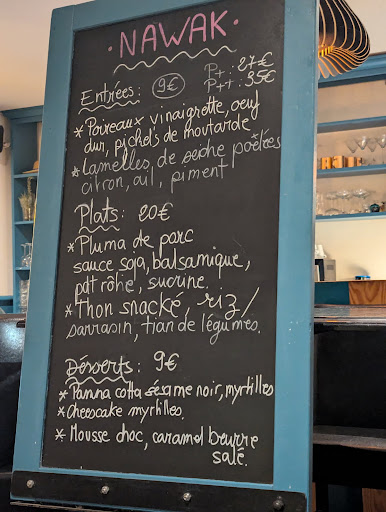 · NAWAK ·
Entrées: 9€ P+ : 27€
P++ : 35€
* Poireaux vinaigrette, oeuf
dur, pickels de moutarde
* Lamelles, de seiche poêlées
citron, ail, piment
Plats: 20€
* Pluma de porc
sauce soja, balsamique,
pdt rôtie, sucrine.
* Thon snacké, riz/
sarrasin, tian de légumes.
Désserts: 9€
* Panna cotta sésame noir, myrtilles
* Cheescake myrtilles.
* Mousse choc, caramel beurre
salé.